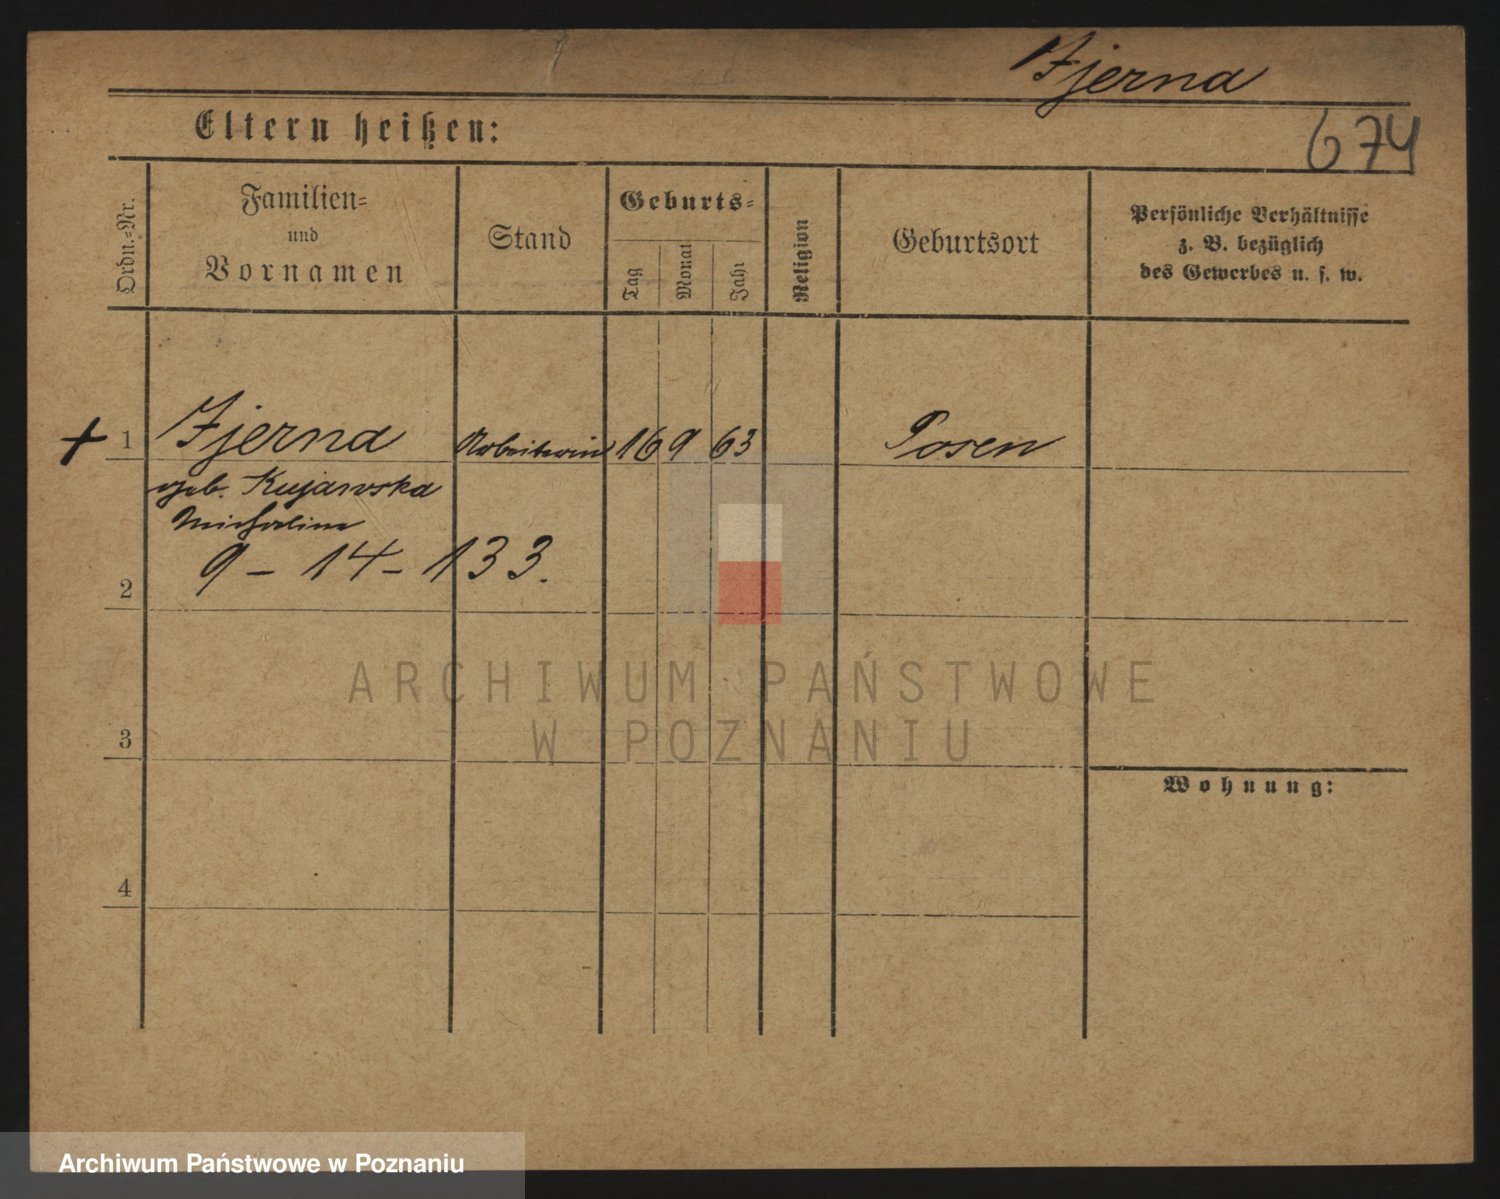 Zjerna
674
Eltern heißen:
Ordn.-Nr.
Familien-
und
Vornamen
Stand
Geburts-
Tag
Monat
Jahr
Religion
Geburtsort
Persönliche Verhältnisse
z. B. bezüglich
des Gewerbes u. s. w.
+ 1 Zjerna Arbeiterin 16 9 63 Posen
geb. Kujawska
Michaline
9 - 14 - 133.
2
3
Wohnung:
4
ARCHIWUM PAŃSTWOWE
W POZNANIU
Archiwum Państwowe w Poznaniu